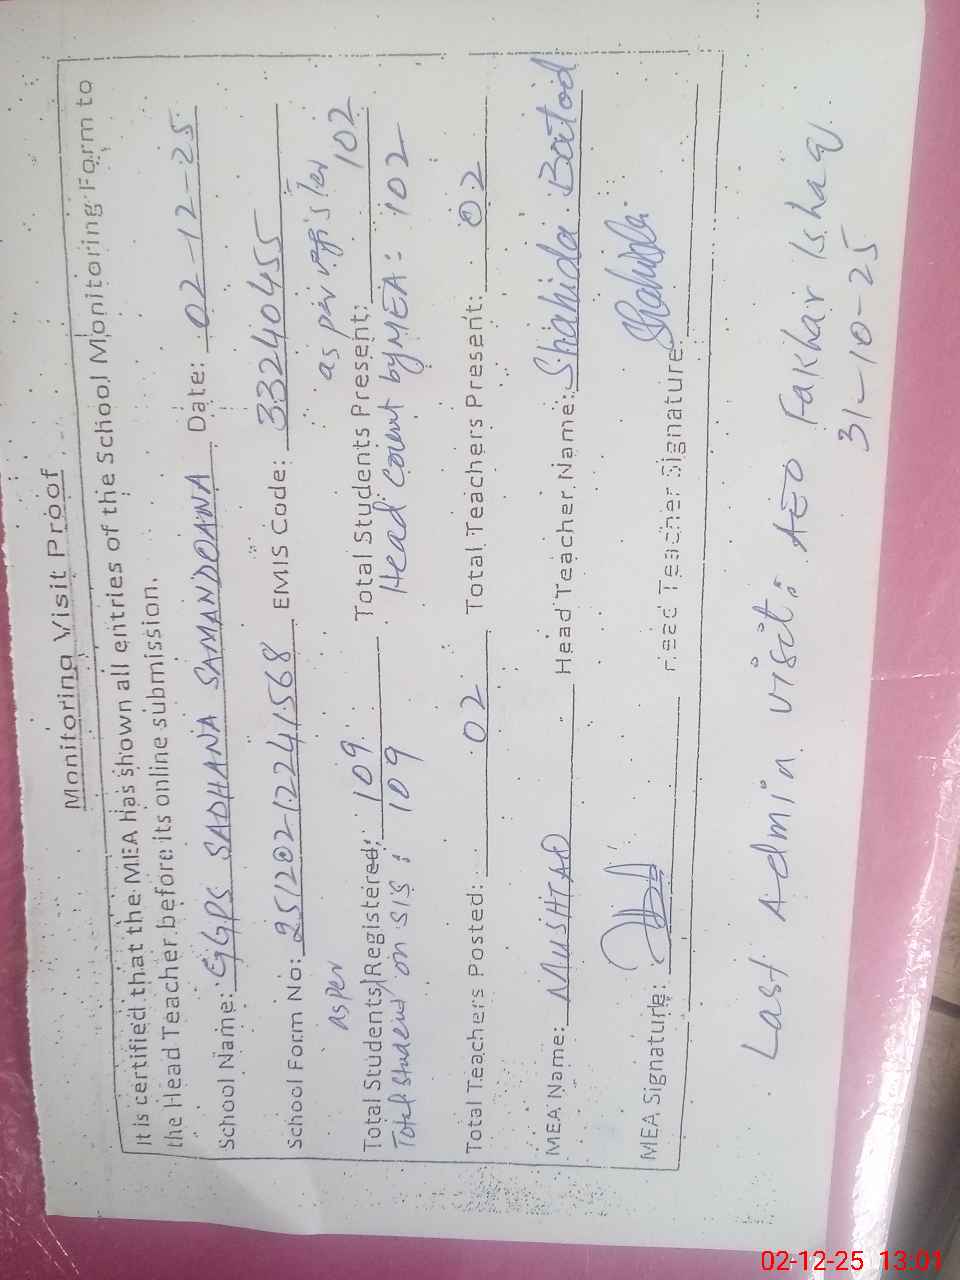 Monitoring Visit Proof
It is certified that the MEA has shown all entries of the School Monitoring Form to
the Head Teacher before its online submission.
School Name: GGPS SADHANA SAMANDOANA Date: 02-12-25
School Form No: 25120212241568 EMIS Code: 33240455
as per as per register
Total Students Registered: 109 Total Students Present: 102
Total Student on SIS: 109 Head Count by MEA: 102
Total Teachers Posted: 02 Total Teachers Present: 02
MEA Name: MUSHTAQ Head Teacher Name: Shahida Batool
MEA Signature: Head Teacher Signature Shahida
Last Admin visit: AEO Fakhar Ishaq
31-10-25
02-12-25 13:01